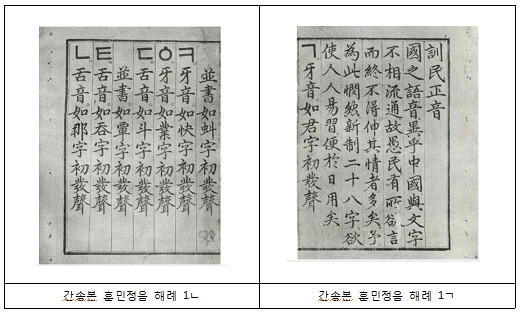 訓民正音
國之語音異乎中國與文字
不相流通故愚民有所欲言
而終不得伸其情者多矣予
為此憫然新制二十八字欲
使人人易習便於日用矣
ㄱ牙音如君字初發聲
並書如虯字初發聲
ㅋ牙音如快字初發聲
ㆁ牙音如業字初發聲
ㄷ舌音如斗字初發聲
並書如覃字初發聲
ㅌ舌音如呑字初發聲
ㄴ舌音如那字初發聲
간송본 훈민정음 해례 1ㄴ
간송본 훈민정음 해례 1ㄱ